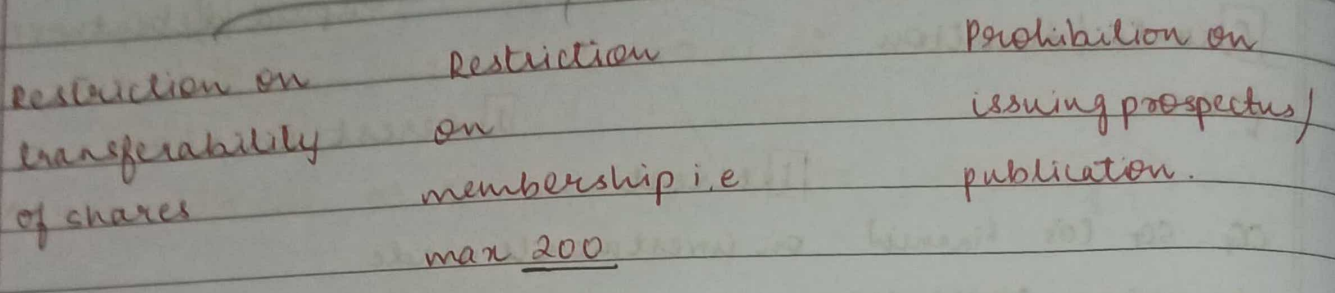 Restriction on
transferability
of shares
Restriction
on
membership i.e
max 200
Prohibition on
issuing prospectus/
publication.